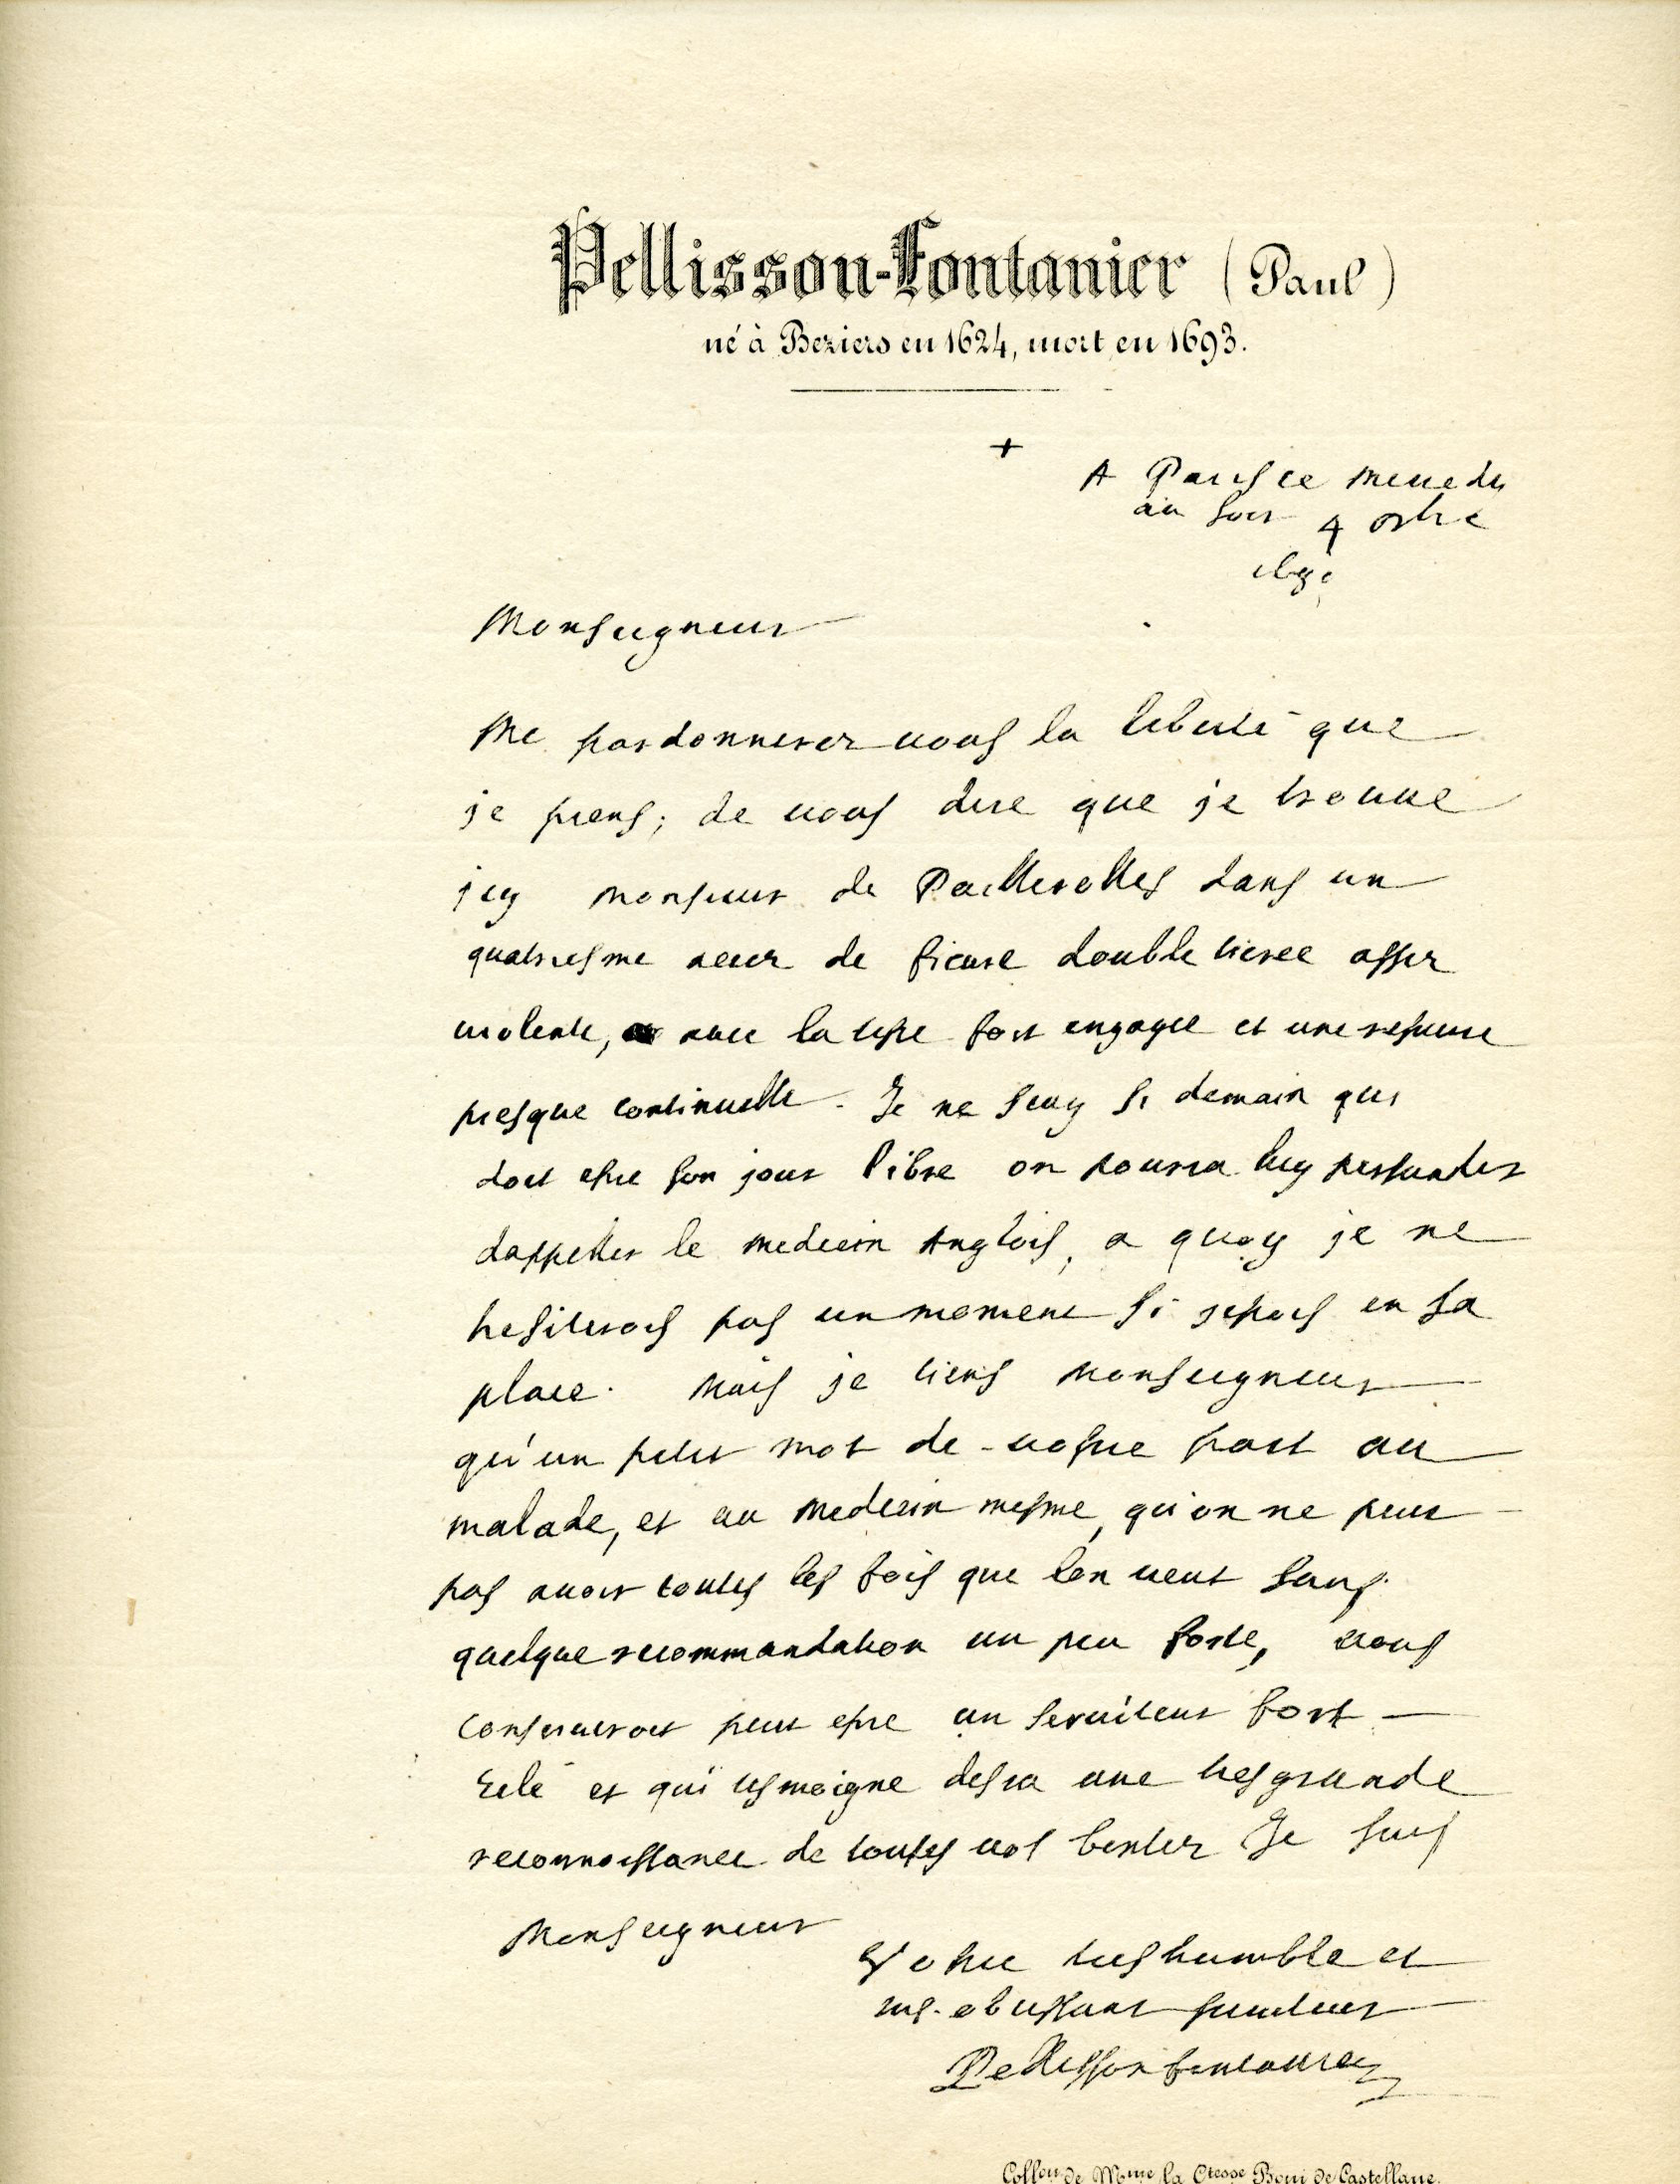 Pellisson-Fontanier (Paul)
né à Beziers en 1624, mort en 1693.
+
A Paris ce mercredy
au soir 4 osbre
Monseigneur
Me pardonnerez vous la liberté que
je prens; de vous dire que je trouve
icy monsieur de Paillerolles dans un
quatriesme accez de fievre double tierce assez
violente, avec la teste fort engagee et une resuerie
presque continuelle. Je ne scay si demain qui
doit estre son jour libre on pourra luy persuader
dappeller le medecin Anglois, a quoy je ne
hesiterois pas un moment si jestois en sa
place. Mais je tiens Monseigneur
qu'un petit mot de vostre part au
malade, et au medecin mesme, qu'on ne peut
pas avoir toutes les fois que lon veut sans
quelque recommandation un peu forte, vous
conserveroit peut estre un serviteur fort
zelé et qui tesmoigne desja une tres grande
reconnoissance de toutes vos bontez Je suis
Monseigneur
Vostre tres humble et
tres obeissant serviteur
Pellisson fontanier
Collon de Mme la Ctesse Boni de Castellane.